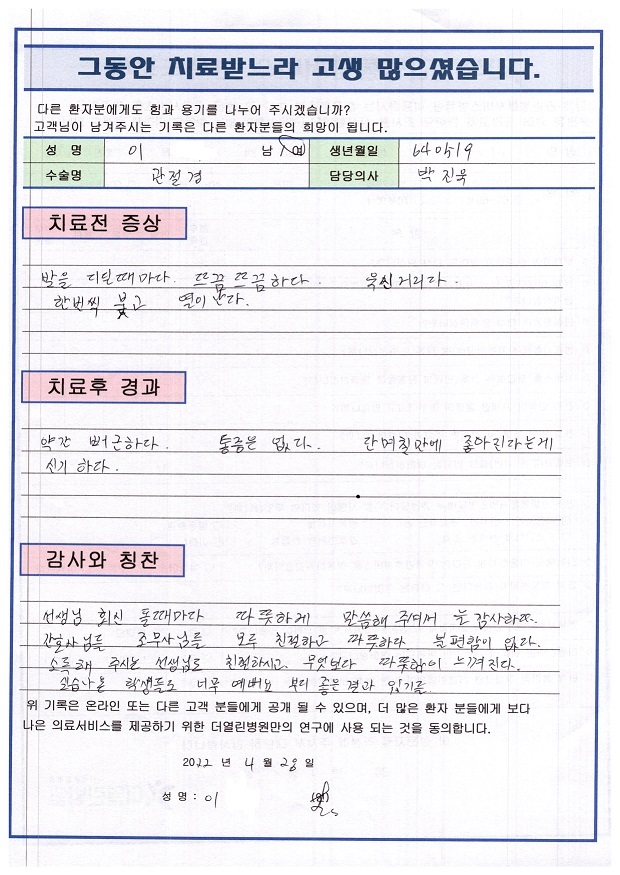 그동안 치료받느라 고생 많으셨습니다.
다른 환자분에게도 힘과 용기를 나누어 주시겠습니까?
고객님이 남겨주시는 기록은 다른 환자분들의 희망이 됩니다.
성 명 이 남 여 생년월일 640519
수술명 관절경 담당의사 박진욱
치료전 증상
발을 디딜때마다. 뜨끔뜨끔하다. 욱신거리다.
한번씩 붓고 열이난다.
치료후 경과
약간 뻐근하다. 통증은 없다. 단며칠만에 좋아진다는게
신기하다.
감사와 칭찬
선생님 회신 돌때마다 따뜻하게 말씀해 주셔서 늘 감사하며.
간호사님들 조무사님들 모두 친절하고 따뜻하다. 불편함이 없다.
소독해 주시는 선생님도 친절하시고. 무엇보다 따뜻함이 느껴진다.
실습나온 학생들도 너무 예뻐요 부디 좋은결과 있기를.
위 기록은 온라인 또는 다른 고객 분들에게 공개 될 수 있으며, 더 많은 환자 분들에게 보다
나은 의료서비스를 제공하기 위한 더열린병원만의 연구에 사용 되는 것을 동의합니다.
2022 년 4 월 28 일
성 명 : 이